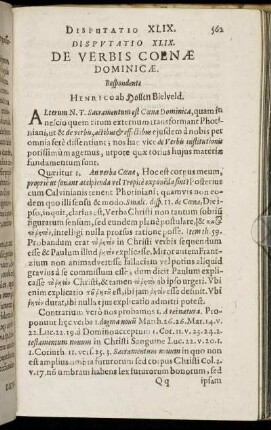 DISPUTATIO XLIX. 562
DISPVTATIO XLIX.
DE VERBIS COENÆ
DOMINICÆ.
Respondente
HENRICO ab Hollen Bielveld.
ALterum N. T. Sacramentum est Cœna Dominica, quam in
nescio quem ritum externum transformant Photi-
niani, ut & de verbis, actibus & effectibus ejusdem à nobis per
omnia ferè dissentiant; nos hac vice de Verbis institutionis
potissimùm agemus, utpote quæ totius hujus materiæ
fundamentum sunt.
Quæritur 1. An verba Cœnæ, Hoc est corpus meum,
propriè ut sonant accipienda vel Tropicè exponenda sint?
cum Calvinianis tenent Photiniani; quamvis non
dem quo illi sensu & modo. Smalc. disp. 11. de Cœna, Di-
pso, inquit, Christus
figuratum sensum, sed eundem planè postulare,
intelligi nulla ratione posse. item th. 59.
Probandum erat in Christi verbis sequendum
esse & Paulum illud
non animadvertisse Smalcium vel potius
graviùs id se commisisse esse; dum dicit Paulum expli-
casse Christi, & tamen ab ipso urgeri. Vbi
enim explicatio est, ibi jam esse definit. Vbi
durat, ibi nulla ejus explicatio admitti potest.
Contrarium verò nos probamus 1. à re natura.
Proponunt hæc verba 1. dogma novũ Matth. 26. 26. Mar. 14. v.
22. Luc. 22. 19. à Domino acceptum 1. Cor. 11. 23. 2.
testamentum novum in Christi Sanguine Luc. 22. v. 20. 1.
2. Corinth. 11. vers. 25. 3. Sacramentum novum in quo non
est amplius umbra futurorum sed corpus Christi Col. 2.
v. 17. nõ umbram habens lex futurorum bonorum, sed
Qq ipsam